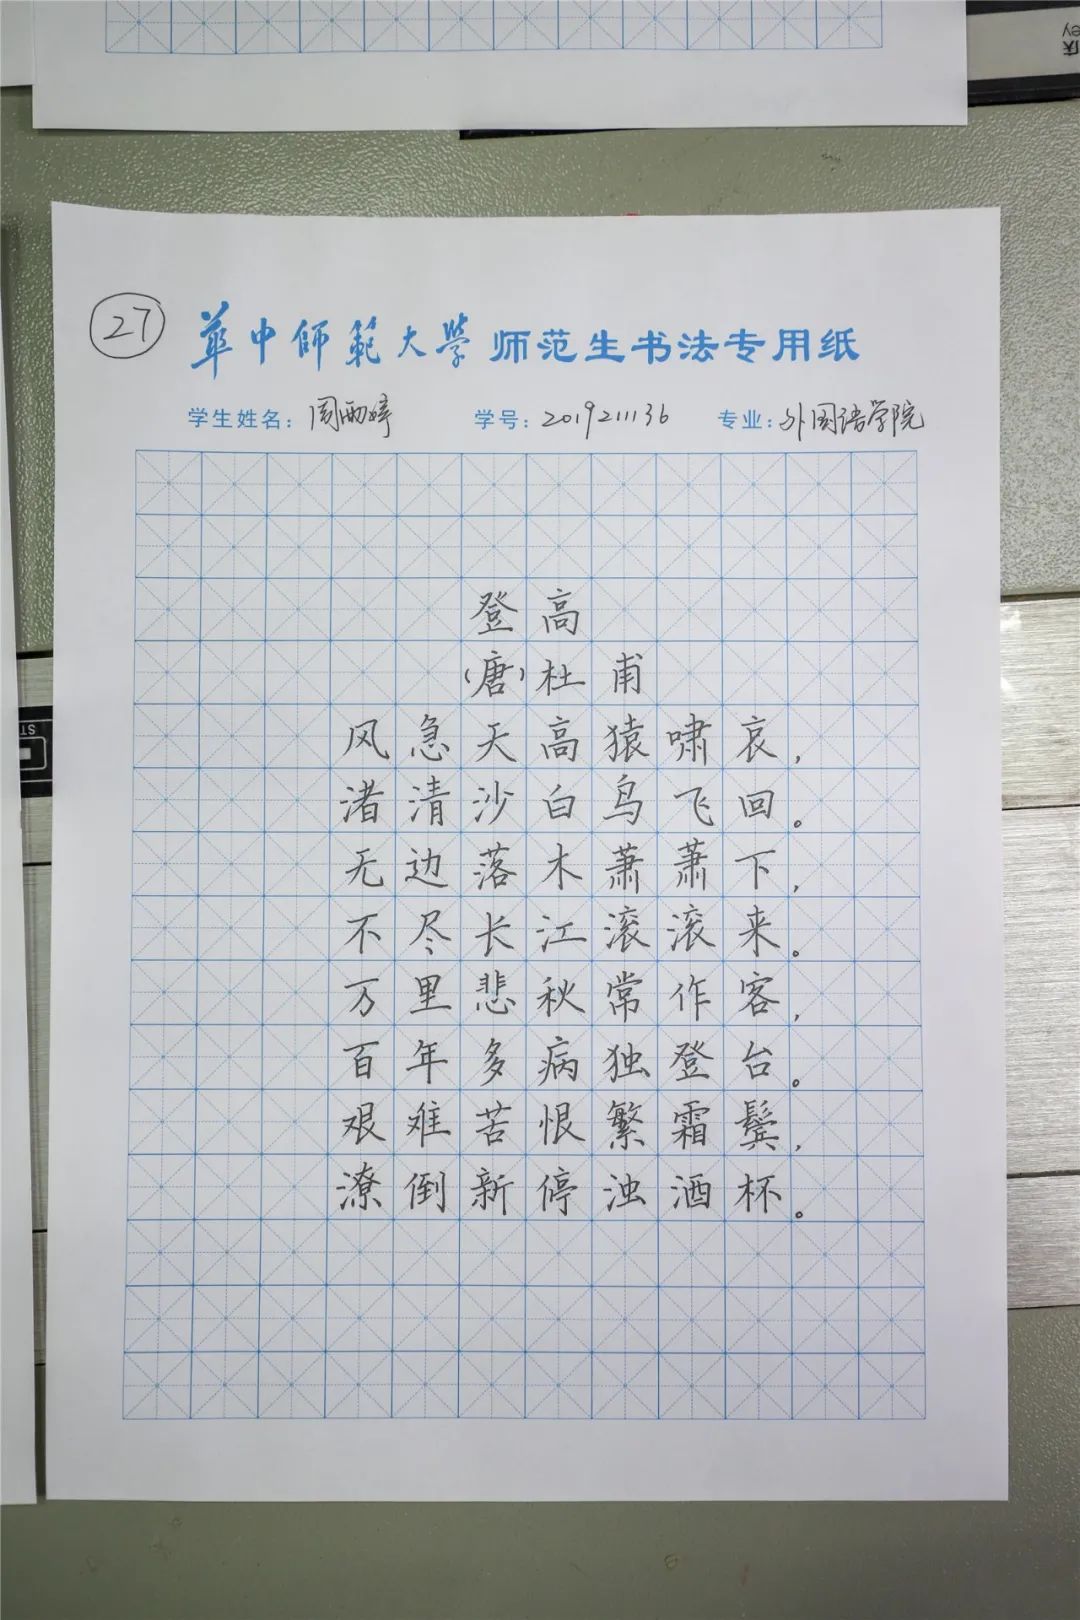 27
華中師範大學 师范生书法专用纸
学生姓名：周雨婷 学号：2019211136 专业：外国语学院
登高
（唐）杜甫
风急天高猿啸哀，
渚清沙白鸟飞回。
无边落木萧萧下，
不尽长江滚滚来。
万里悲秋常作客，
百年多病独登台。
艰难苦恨繁霜鬓，
潦倒新停浊酒杯。